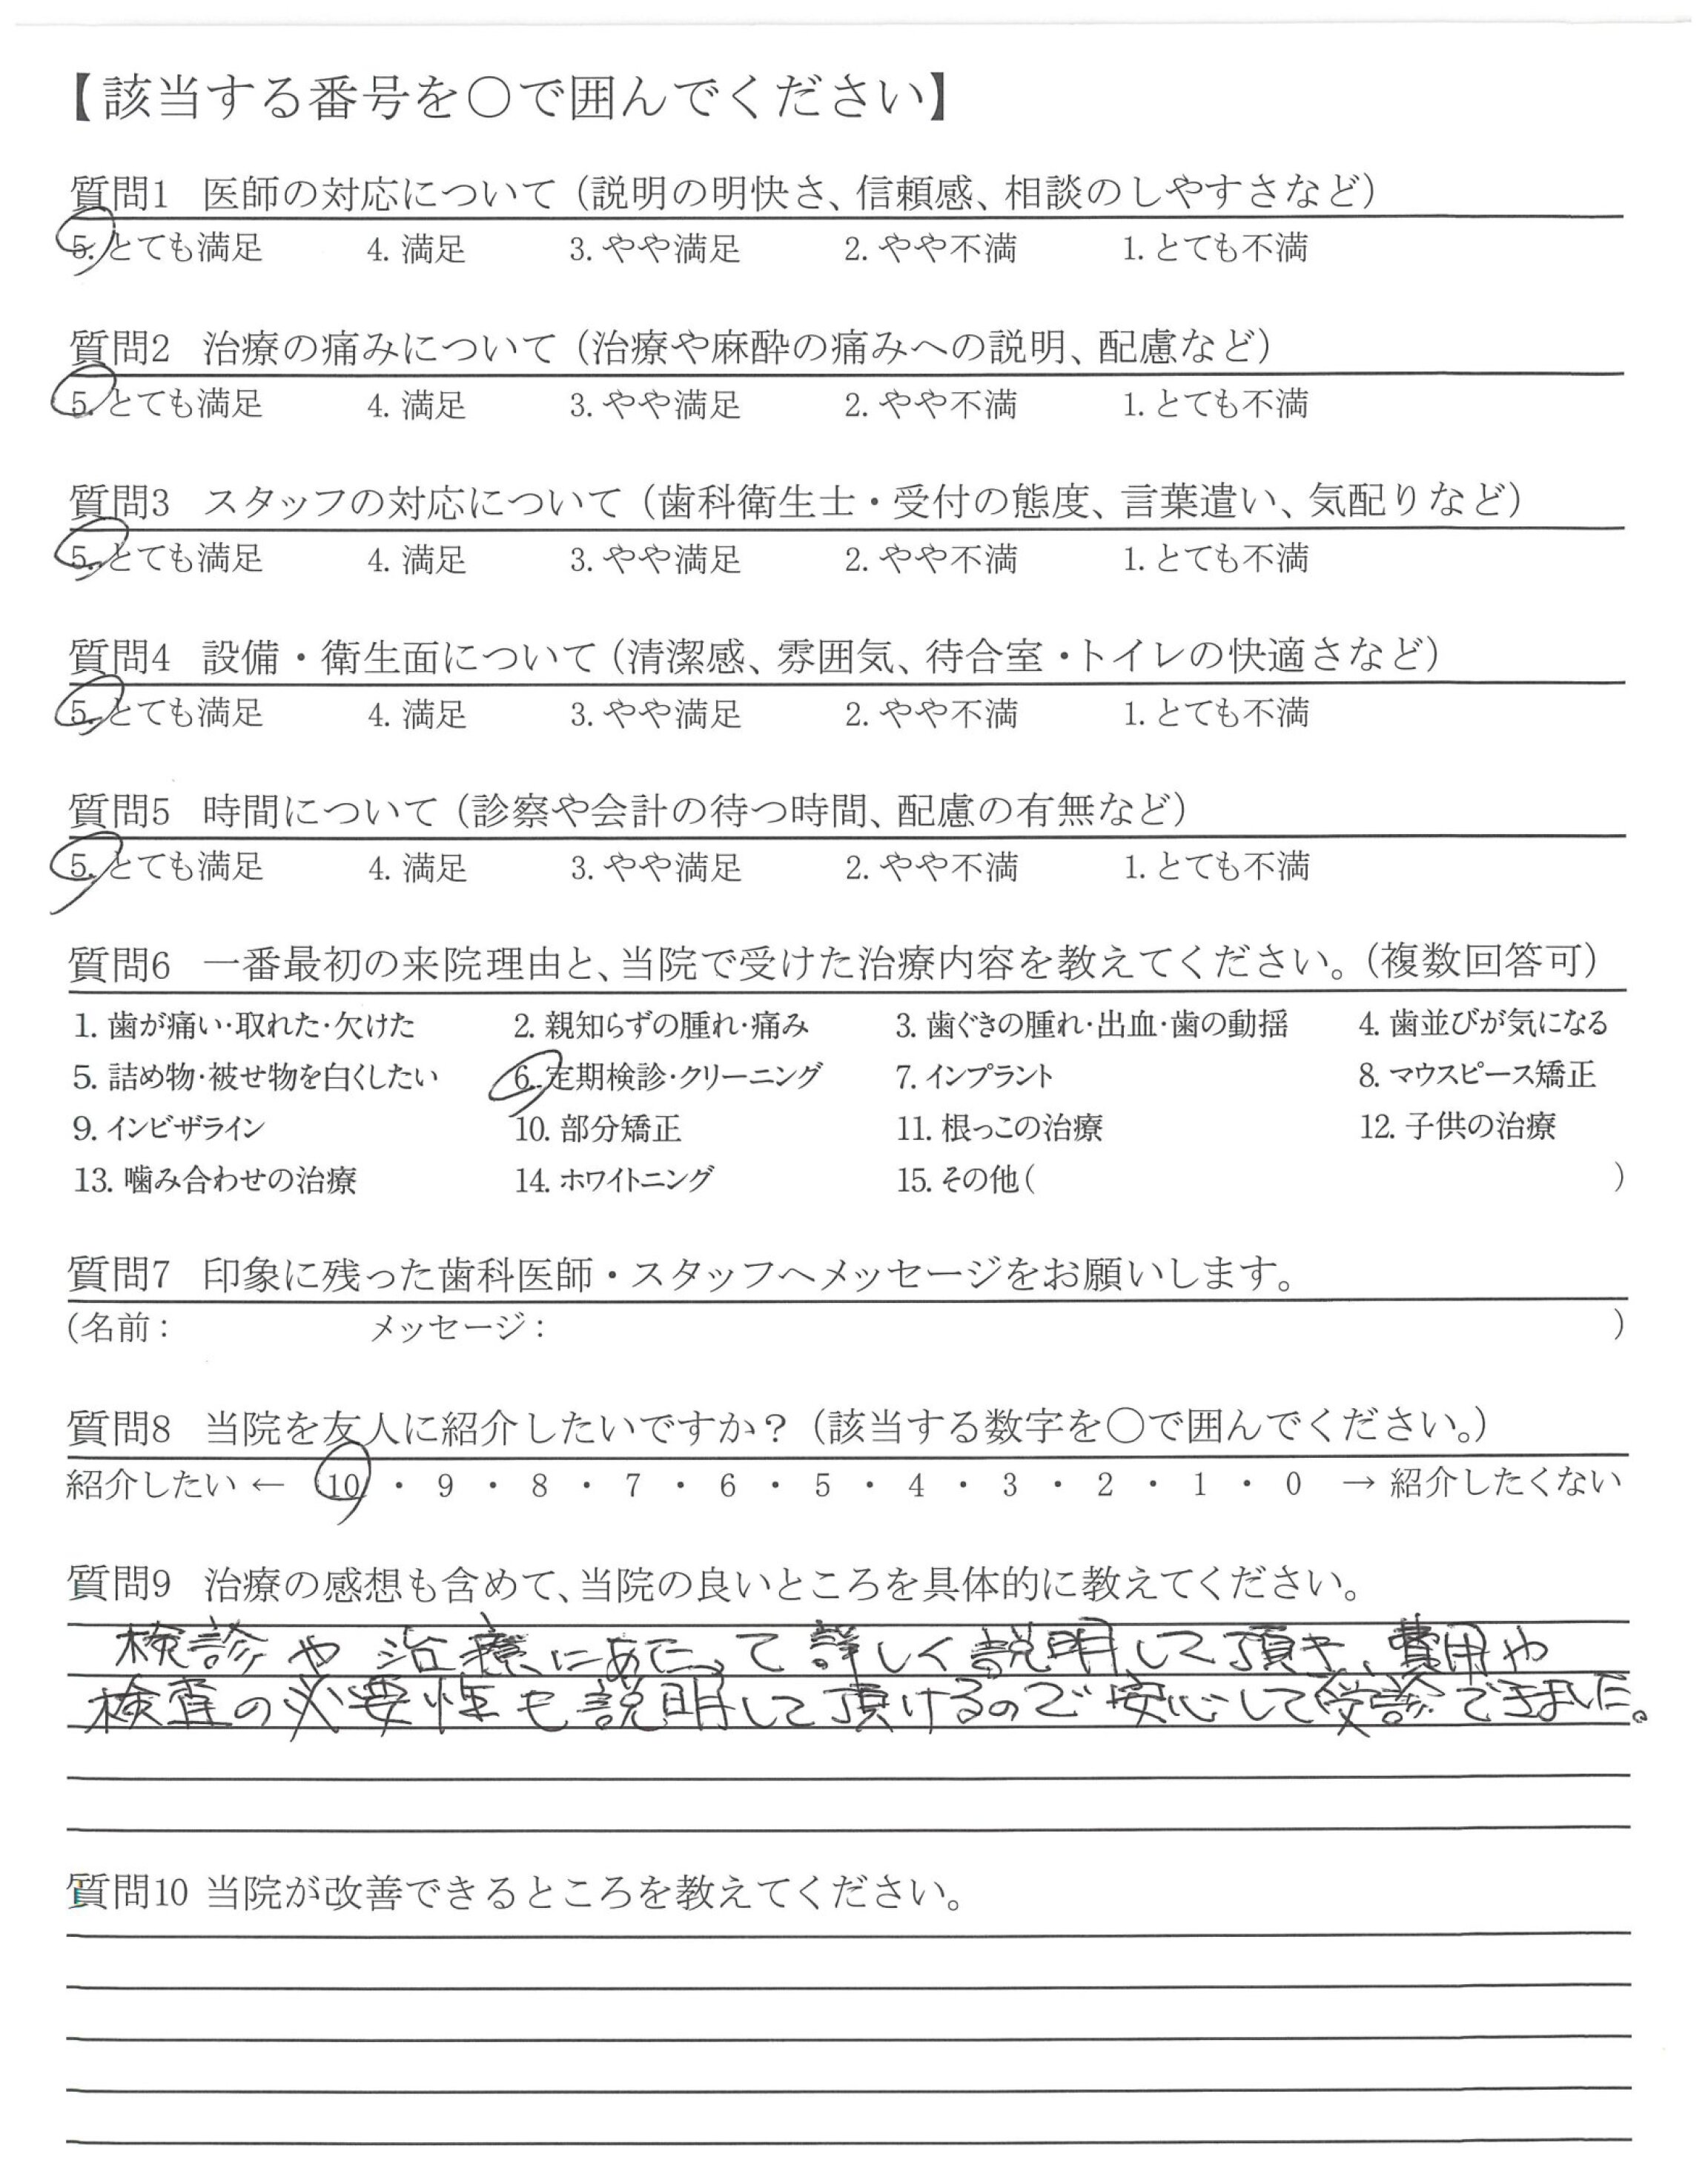 【該当する番号を〇で囲んでください】
質問1 医師の対応について（説明の明快さ、信頼感、相談のしやすさなど）
5. とても満足 4. 満足 3. やや満足 2. やや不満 1. とても不満
質問2 治療の痛みについて（治療や麻酔の痛みへの説明、配慮など）
5. とても満足 4. 満足 3. やや満足 2. やや不満 1. とても不満
質問3 スタッフの対応について（歯科衛生士・受付の態度、言葉遣い、気配りなど）
5. とても満足 4. 満足 3. やや満足 2. やや不満 1. とても不満
質問4 設備・衛生面について（清潔感、雰囲気、待合室・トイレの快適さなど）
5. とても満足 4. 満足 3. やや満足 2. やや不満 1. とても不満
質問5 時間について（診察や会計の待つ時間、配慮の有無など）
5. とても満足 4. 満足 3. やや満足 2. やや不満 1. とても不満
質問6 一番最初の来院理由と、当院で受けた治療内容を教えてください。（複数回答可）
1. 歯が痛い・取れた・欠けた 2. 親知らずの腫れ・痛み 3. 歯ぐきの腫れ・出血・歯の動揺 4. 歯並びが気になる
5. 詰め物・被せ物を白くしたい 6. 定期検診・クリーニング 7. インプラント 8. マウスピース矯正
9. インビザライン 10. 部分矯正 11. 根っこの治療 12. 子供の治療
13. 噛み合わせの治療 14. ホワイトニング 15. その他（ ）
質問7 印象に残った歯科医師・スタッフへメッセージをお願いします。
（名前： メッセージ： ）
質問8 当院を友人に紹介したいですか？（該当する数字を〇で囲んでください。）
紹介したい ← 10 ・ 9 ・ 8 ・ 7 ・ 6 ・ 5 ・ 4 ・ 3 ・ 2 ・ 1 ・ 0 → 紹介したくない
質問9 治療の感想も含めて、当院の良いところを具体的に教えてください。
検診や治療にあたって詳しく説明して頂き、費用や
検査の必要性も説明して頂けるので安心して受診できました。
質問10 当院が改善できるところを教えてください。